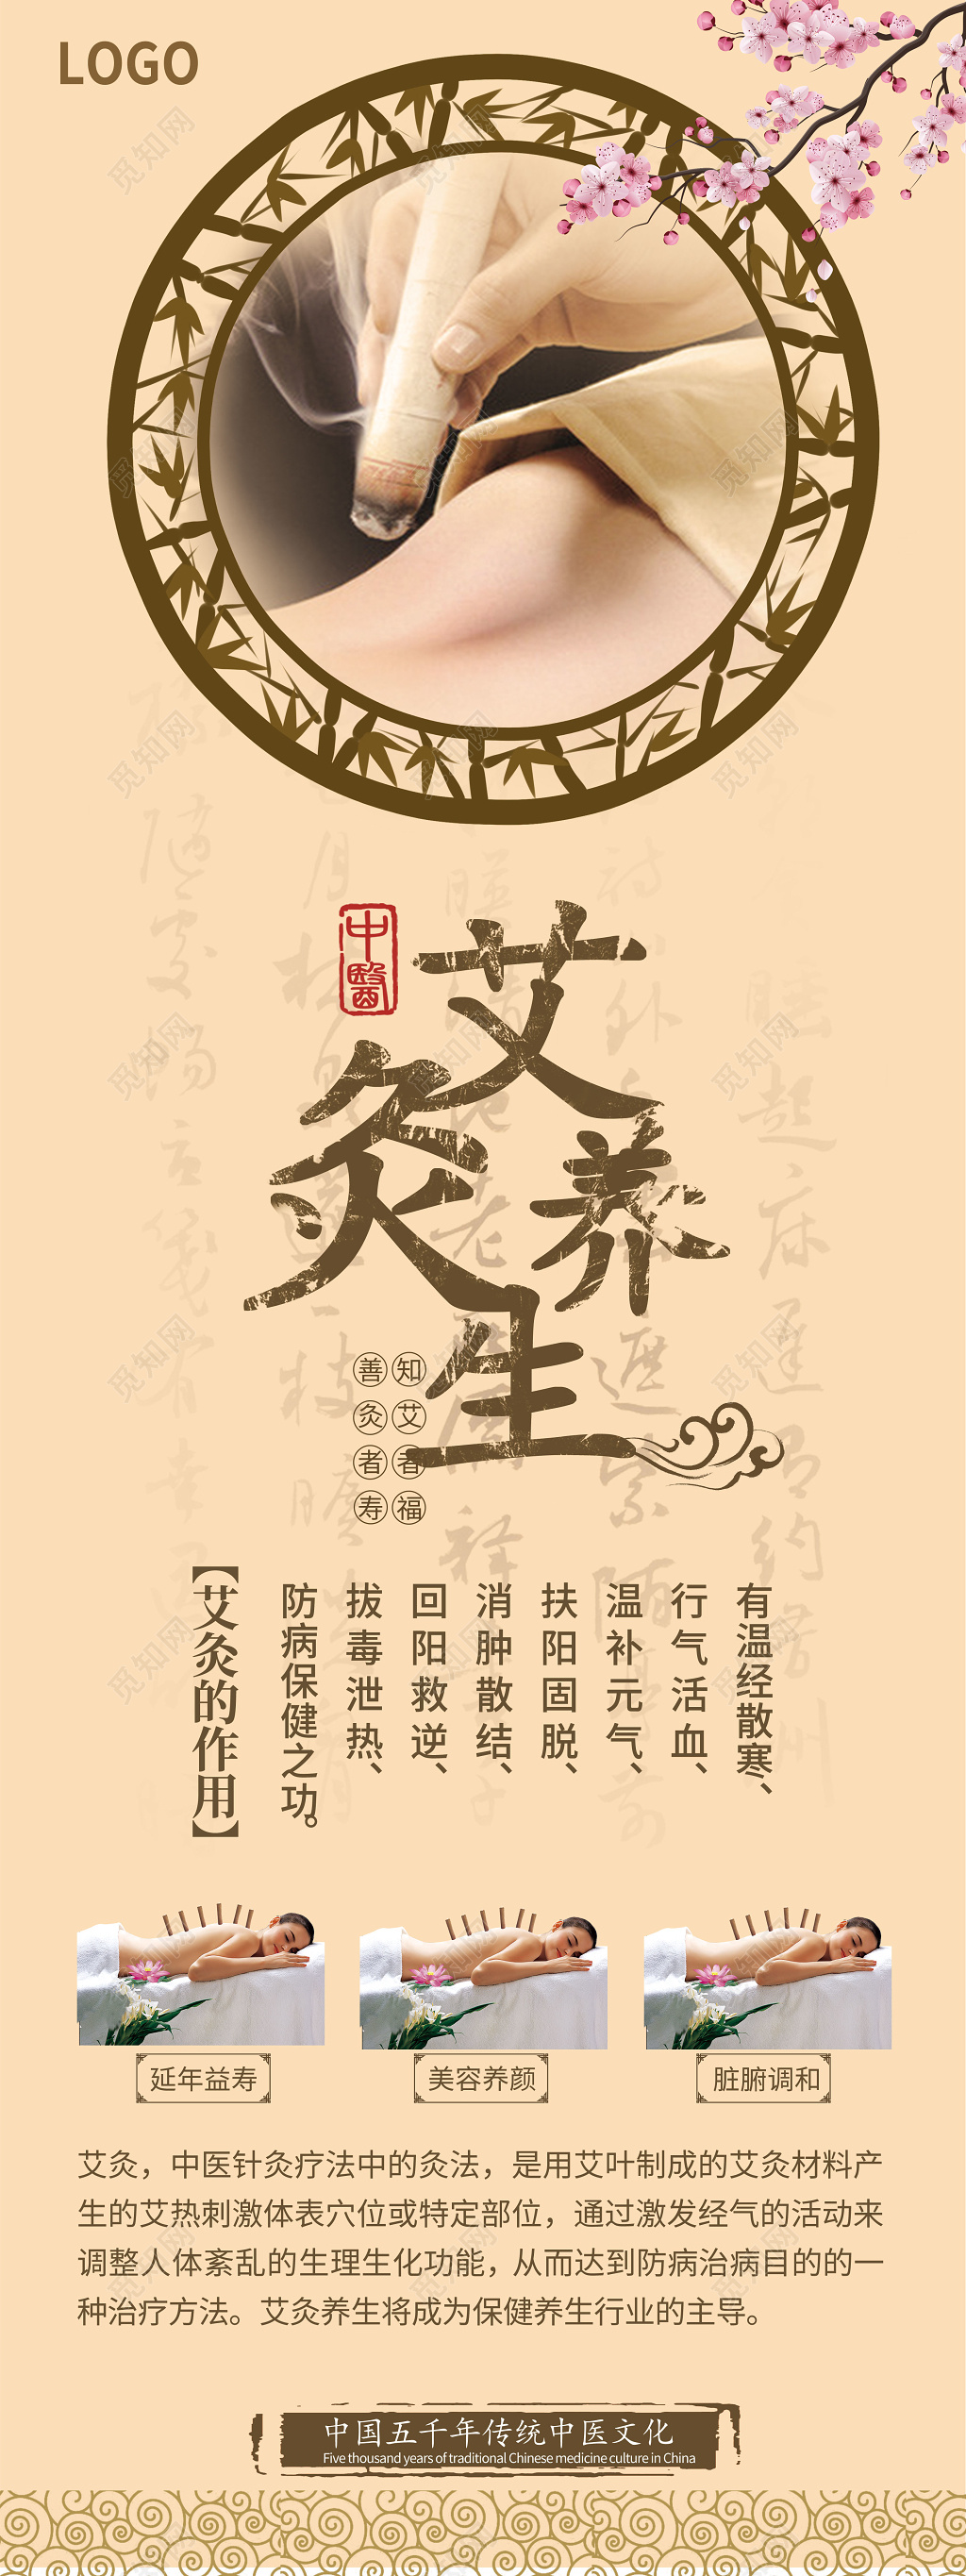 LOGO
中醫
艾灸养生
知艾者福
善灸者寿
有温经散寒、
行气活血、
温补元气、
扶阳固脱、
消肿散结、
回阳救逆、
拔毒泄热、
防病保健之功。
【艾灸的作用】
延年益寿
美容养颜
脏腑调和
艾灸，中医针灸疗法中的灸法，是用艾叶制成的艾灸材料产
生的艾热刺激体表穴位或特定部位，通过激发经气的活动来
调整人体紊乱的生理生化功能，从而达到防病治病目的的一
种治疗方法。艾灸养生将成为保健养生行业的主导。
中国五千年传统中医文化
Five thousand years of traditional Chinese medicine culture in China
觅知网